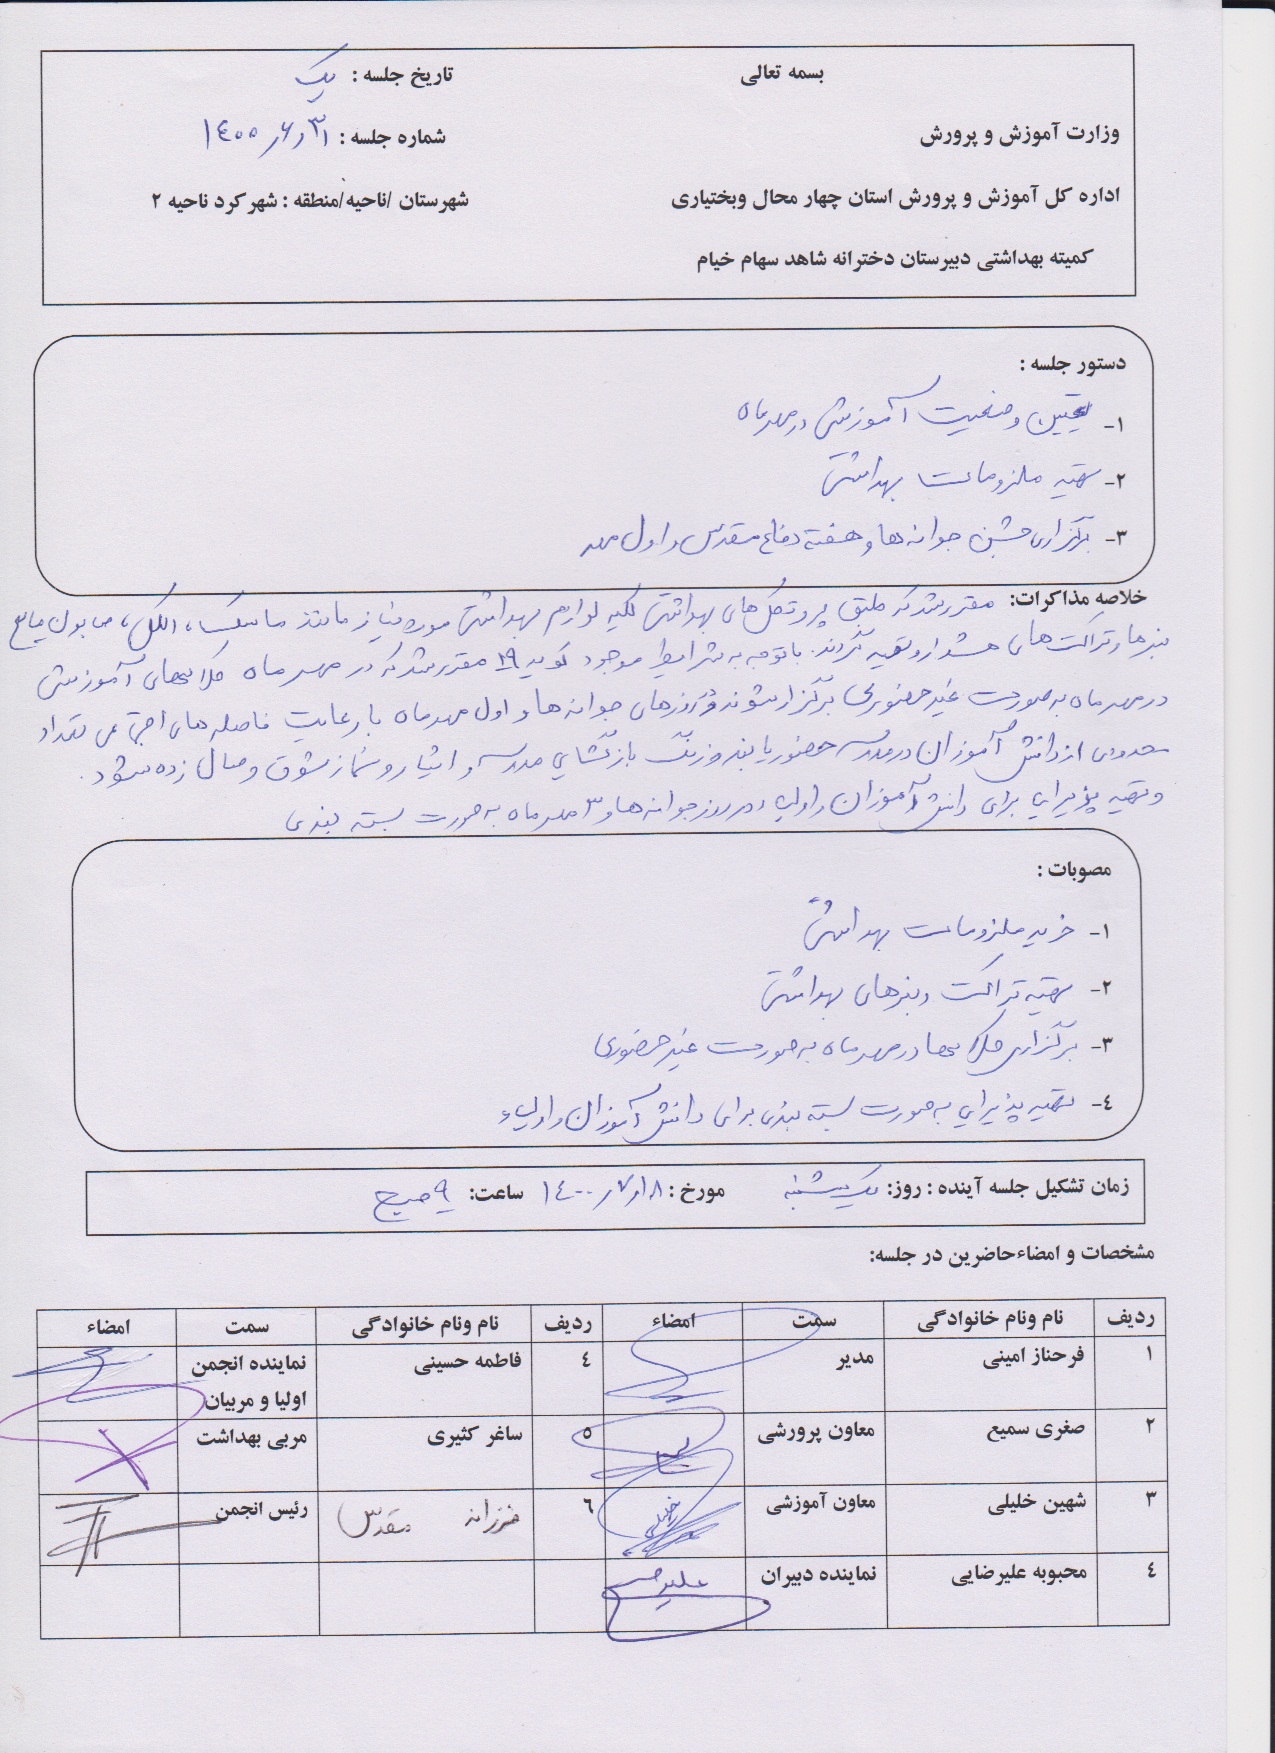 بسمه تعالی
تاریخ جلسه : یک
وزارت آموزش و پرورش
شماره جلسه : ۱۴۰۰/۶/۳۱
اداره کل آموزش و پرورش استان چهار محال وبختیاری
شهرستان /ناحیه/منطقه : شهرکرد ناحیه ۲
کمیته بهداشتی دبیرستان دخترانه شاهد سهام خیام
دستور جلسه :
۱- تعیین وضعیت آموزش در مهرماه
۲- تهیه ملزومات بهداشتی
۳- برگزاری جشن جوانه ها و هفته دفاع مقدس و اول مهر
خلاصه مذاکرات: مقرر شد که طبق پروتکل های بهداشتی کلیه لوازم بهداشتی مورد نیاز مانند ماسک، الکل، صابون مایع
بنرها و تراکت های هشدار و تهیه گردند. با توجه به شرایط موجود کوید ۱۹ مقرر شد که در مهر ماه کلاسهای آموزشی
در مهر ماه به صورت غیر حضوری برگزار شوند و روزهای جوانه ها و اول مهر ماه با رعایت فاصله های اجتماعی تعداد
محدودی از دانش آموزان در مدرسه حضور یابند و زنگ بازگشایی مدرسه و ایثار و نماز شوق وصال زده شود.
و تهیه پذیرایی برای دانش آموزان و اولیاء در روز جوانه ها و ۳ مهر ماه به صورت بسته بندی
مصوبات :
۱- خرید ملزومات بهداشتی
۲- تهیه تراکت و بنرهای بهداشتی
۳- برگزاری کلاسها در مهر ماه به صورت غیر حضوری
٤- تهیه پذیرایی به صورت بسته بندی برای دانش آموزان و اولیاء
زمان تشکیل جلسه آینده : روز: یکشنبه مورخ : ۱۴۰۰/۷/۱۸ ساعت: ۹ صبح
مشخصات و امضاءحاضرین در جلسه:
ردیف نام ونام خانوادگی سمت امضاء ردیف نام ونام خانوادگی سمت امضاء
۱ فرحناز امینی مدیر ٤ فاطمه حسینی نماینده انجمن
اولیا و مربیان
۲ صغری سمیع معاون پرورشی ۵ ساغر کثیری مربی بهداشت
۳ شهین خلیلی معاون آموزشی خلیلی ٦ فرزانه مقدس رئیس انجمن
٤ محبوبه علیرضایی نماینده دبیران